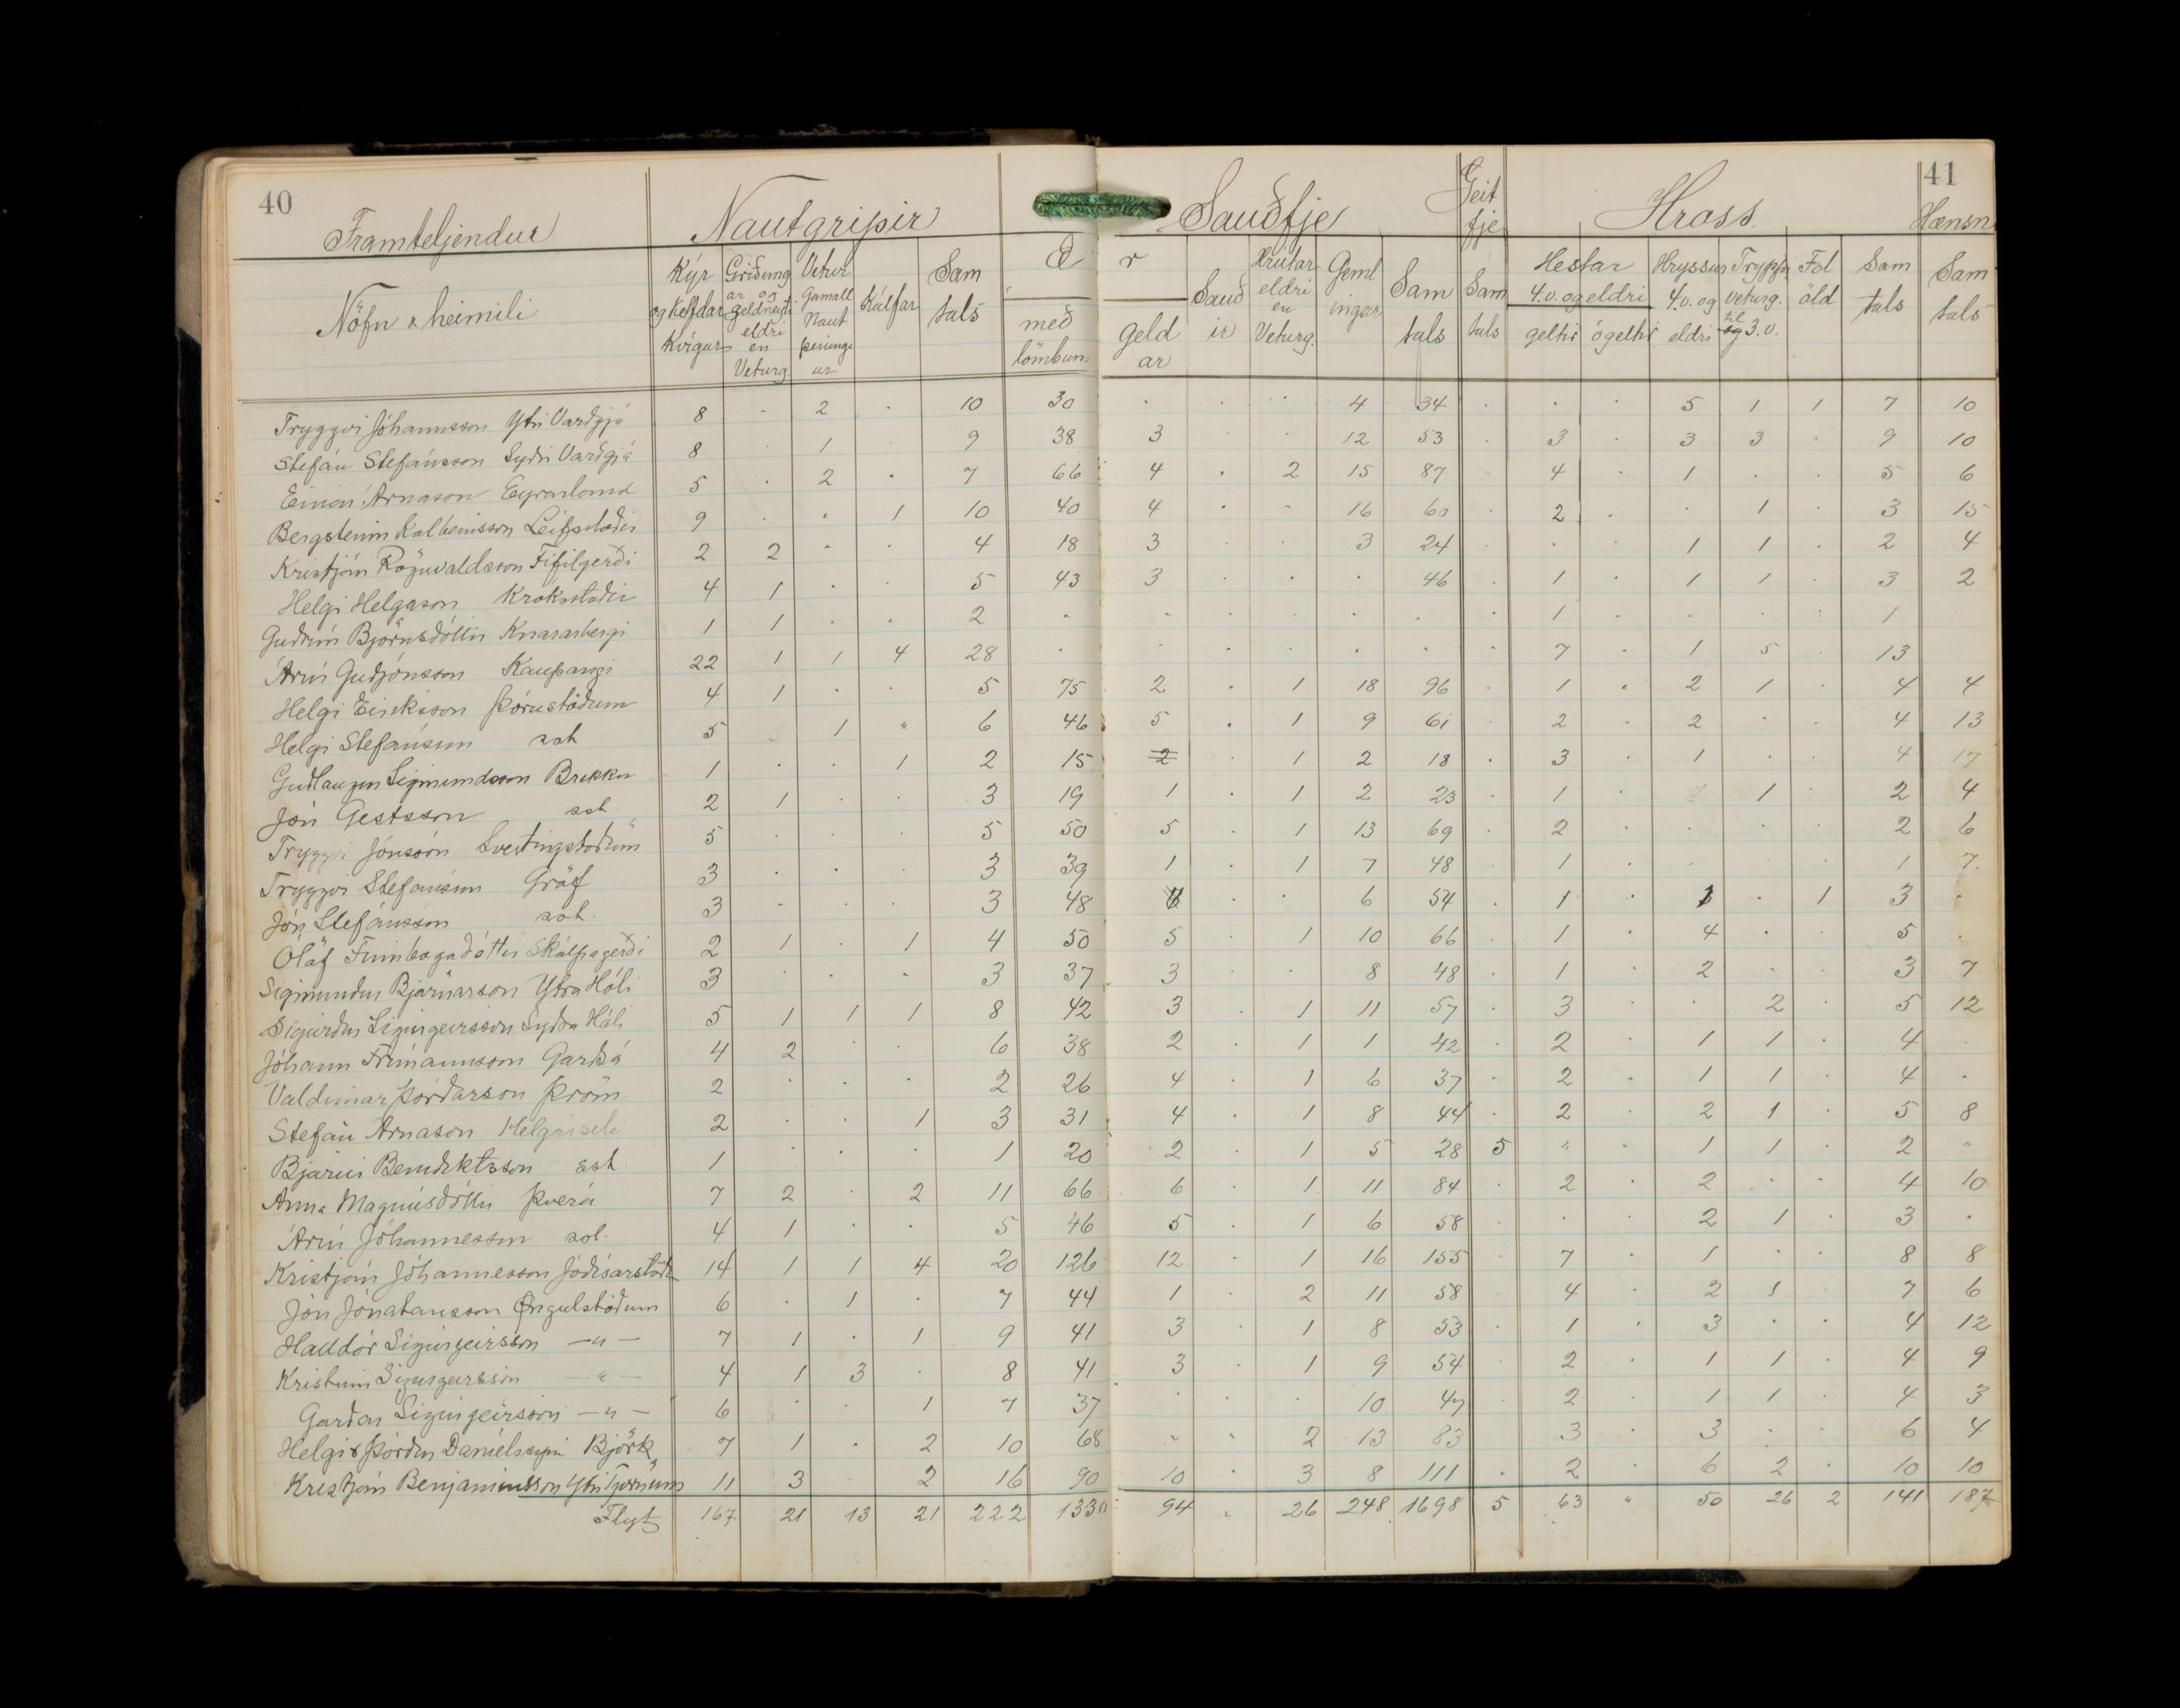 40
41
Framteljendur Nautgripir Sauðfje Geit fje Hross. Hænsn
Nöfn & heimili
Kýr og kefldar kvígur
Griðungar og geldneyti eldri en Veturg.
Vetur Gamall Naut peningur
Kálfar
Sam tals
Ær með lömbum
geldar
Sauðir
Hrútar eldri en Veturg.
Gemlingar
Sam tals
Sam tals
Hestar 4.v. og eldri geltir ógeltir
Hryssur 4.v. og eldri
Tryppi veturg. til og 3.v.
Fol öld
Sam tals
Sam tals
Tryggvi Jóhannsson Ytri Varðgjá 8 . 2 . 10 30 . . . 4 34 . . . 5 1 1 7 10
Stefán Stefánsson Syðri Varðgjá 8 . 1 . 9 38 3 . . 12 53 . 3 . 3 3 . 9 10
Einar Árnason Eyrarland 5 . 2 . 7 66 4 . 2 15 87 4 . 1 . . 5 6
Bergsteinn Kolbeinsson Leifsstaðir 9 . . 1 10 40 4 . . 16 60 . 2 . . 1 . 3 15
Kristján Rögnvaldsson Fífilgerði 2 2 . . 4 18 3 . . 3 24 . . . 1 1 . 2 4
Helgi Helgason Krokastaðir 4 1 . . 5 43 3 . . . 46 . 1 . 1 1 . 3 2
Guðrún Björnsdóttir Knararbergi 1 1 . . 2 . . . . . . . 1 . . . . 1
Árni Guðjónsson Kaupangi 22 1 1 4 28 . . . . . . . 7 . 1 5 . 13
Helgi Eiríksson Þórustöðum 4 1 . . 5 75 2 . 1 18 96 . 1 . 2 1 . 4 4
Helgi Stefánsson sst 5 . 1 " 6 46 5 . 1 9 61 . 2 . 2 . . 4 13
Guðlaugur Sigmundsson Brekku 1 . . 1 2 15 2 . 1 2 18 . 3 . 1 . . 4 17
Jón Gestsson sst. 2 1 . . 3 19 1 . 1 2 23 . 1 . 1 . 2 4
Tryggvi Jónsson Svertingstöðum 5 . . . 5 50 5 . 1 13 69 . 2 . . . . 2 6
Tryggvi Stefánsson Gröf 3 . . . 3 39 1 . 1 7 48 . 1 . . . 1 7.
Jón Stefánsson sst. 3 . . . 3 48 . . 6 54 . 1 . 1 . 1 3 .
Ólöf Finnbogadóttir Skálpagerði 2 1 . 1 4 50 5 . 1 10 66 . 1 . 4 . . 5 .
Sigmundur Bjarnarson Ytra Hóli 3 . . . 3 37 3 . . 8 48 . 1 . 2 . . 3 7
Sigurður Sigurgeirsson Syðra Hóli 5 1 1 1 8 42 3 . 1 11 57 . 3 . . 2 . 5 12
Jóhann Frímannsson Garðsá 4 2 . . 6 38 2 . 1 1 42 . 2 . 1 1 . 4 .
Valdimar Þórðarson Þröm 2 . . . 2 26 4 . 1 6 37 . 2 . 1 1 . 4 .
Stefán Árnason Helgárseli 2 . . 1 3 31 4 . 1 8 44 . 2 . 2 1 . 5 8
Bjarni Benediktsson sst. 1 . . . 1 20 2 . 1 5 28 5 " . 1 1 . 2 "
Anna Magnúsdóttir Þverá 7 2 . 2 11 66 6 . 1 11 84 . 2 . 2 . . 4 10
Árni Jóhannesson sst. 4 1 . . 5 46 5 . 1 6 58 . . . 2 1 . 3 .
Kristján Jóhannesson Jódísarstöð 14 1 1 4 20 126 12 . 1 16 155 . 7 . 1 . . 8 8
Jón Jónatansson Öngulstöðum 6 . 1 . 7 44 1 . 2 11 58 . 4 . 2 1 . 7 6
Halldór Sigurgeirsson — " — 7 1 . 1 9 41 3 . 1 8 53 . 1 . 3 . . 4 12
Kristinn Sigurgeirsson — " — 4 1 3 . 8 41 3 . 1 9 54 . 2 . 1 1 . 4 9
Garðar Sigurgeirsson — " — 6 . . 1 7 37 . . . 10 47 . 2 . 1 1 . 4 3
Helgi & Þórður Daníelssynir Björk 7 1 . 2 10 68 . . 2 13 83 3 . 3 . . 6 4
Kristján Benjamínsson Ytri Tjörnum 11 3 . 2 16 90 10 . 3 8 111 . 2 . 6 2 . 10 10
Flyt 167 21 13 21 222 1330 94 " 26 248 1698 5 63 " 50 26 2 141 187